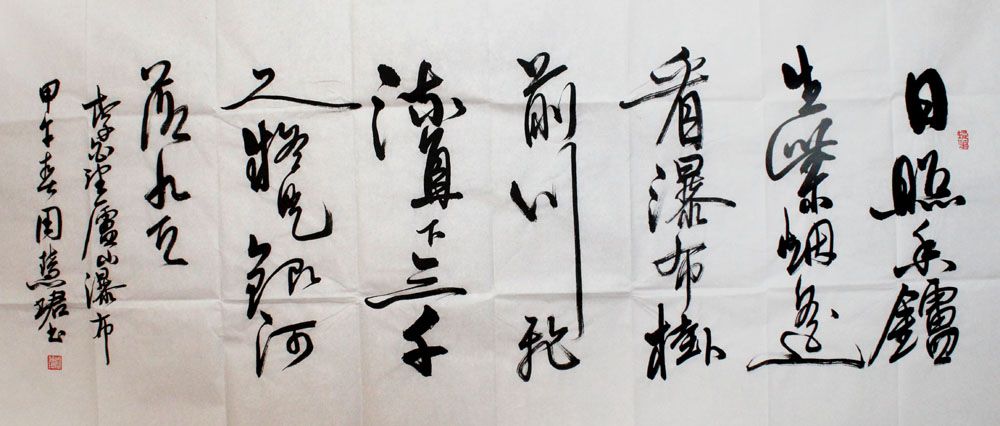 日照香鑪
生紫烟遥
看瀑布掛
前川飛
流直下三千
尺疑是銀河
落九天
李白望廬山瀑布
甲午春周慧珺书